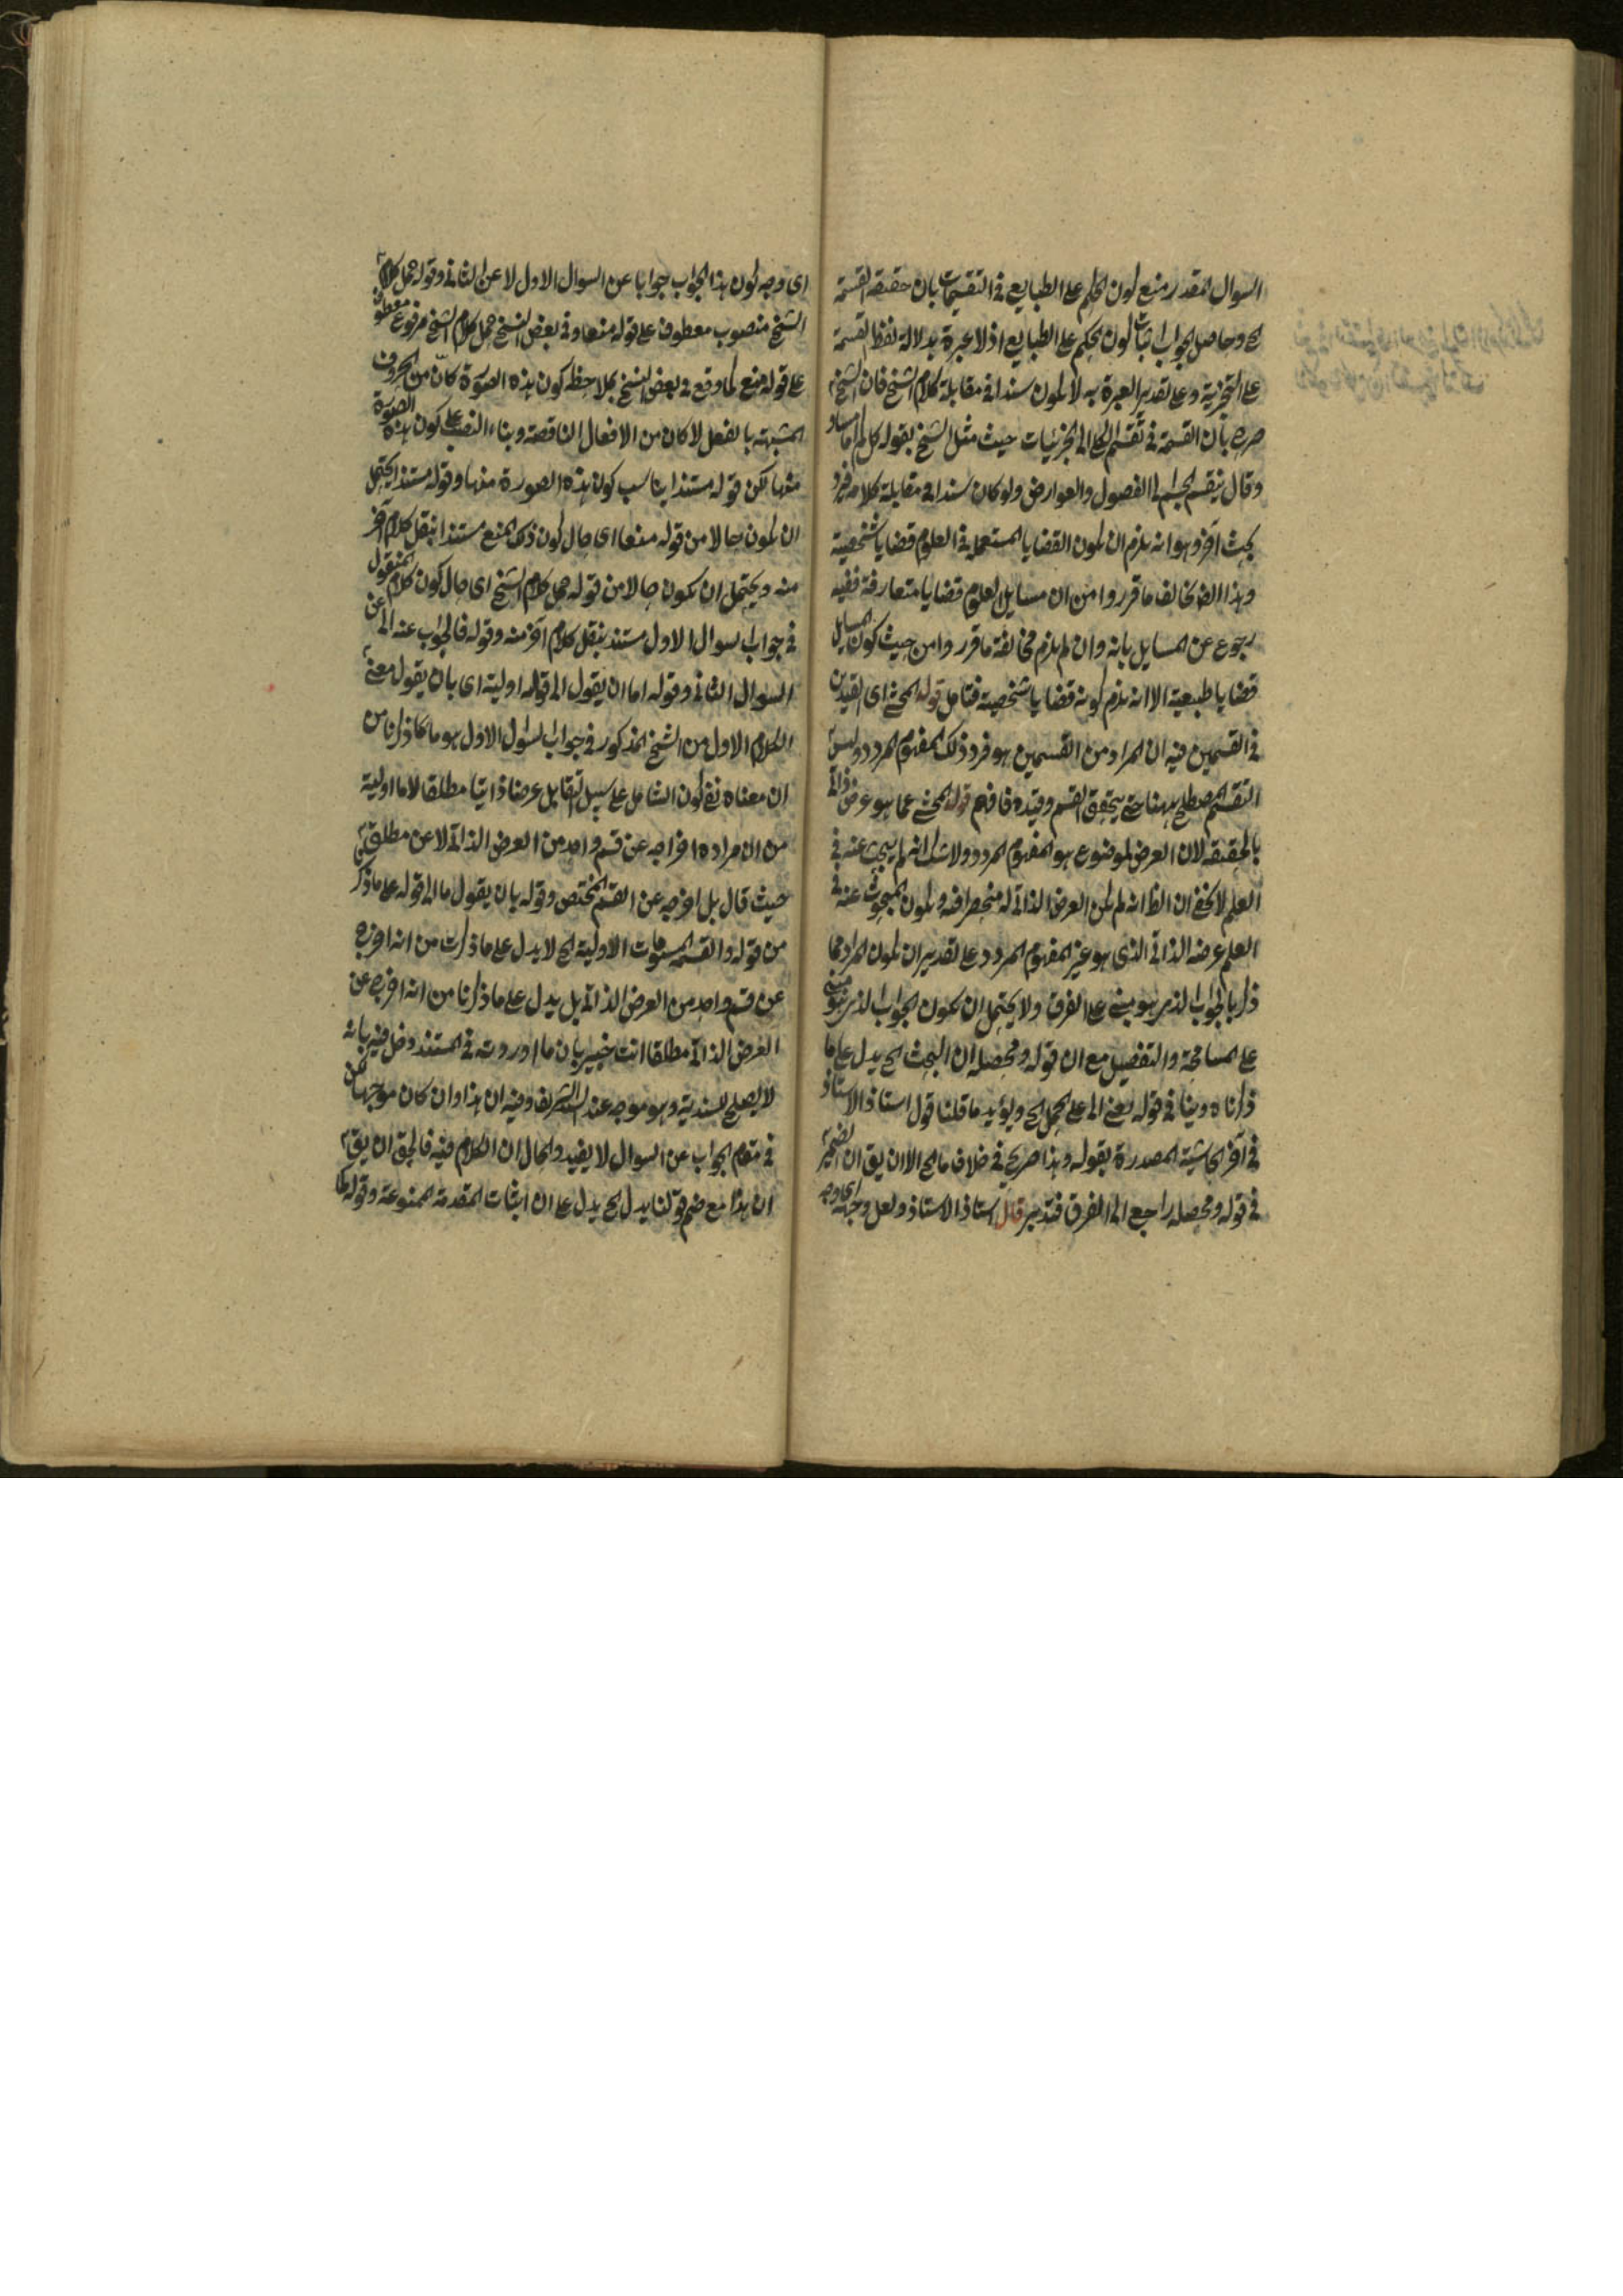 السوال المقدر منع كون الحكم على الطبايع في التقسيمات بان حقيقة القسمة
الخ وحاصل الجواب اثبات كون الحكم على الطبايع اذ لا عبرة بدلالة لفظ القسمة
على التجزية وعلى تقدير العبرة به لا يكون سندا في مقابلة كلام الشيخ فان الشيخ
صرح بان القسمة في تقسيم الكلي الى الجزئيات حيث مثل الشيخ بقوله كل اما
وقال ينقسم الجسم الى الفصول والعوارض ولو كان سندا في مقابلة كلامه فيرد
بحث آخر وهو انه يلزم ان يكون القضايا المستعملة في العلوم قضايا شخصية
وهذا ايضا يخالف ما قرروا من ان مسايل العلوم قضايا متعارفة ففيه
رجوع عن المسايل بانه وان لم يلزم مخالفة ما قرروا من حيث كون المسايل
قضايا طبيعية الا انه يلزم كونه قضايا شخصية فتامل قوله المحشي اي القيدين
في القسمين فيه ان المراد من القسمين هو فرد ذلك المفهوم المردد وليس
التقسيم المصطلح ههنا حتى يتحقق القسم وقيده فافهم قوله المحشي عما هو عرض ذاتي
بالحقيقة لان العرض لموضوع هو المفهوم المردد ولا شك انه لم يبحث عنه في
العلم لا يخفى ان الظ انه لم يكن العرض الذاتي له منحصرا فيه ويكون المبحوث عنه في
العلم عرضه الذاتي الذي هو غير المفهوم المردد على تقدير ان يكون المراد مما
ذكر بالجواب الذي هو مبني على الفرق ولا يحتمل ان يكون الجواب الذي هو مبني
على المسامحة والتفصيل مع ان قوله ومحصله ان البحث الخ يدل على ما
ذكرناه وينافي قوله يعني الى على المجمل الخ ويؤيد ما قلنا قول استاذ الاستاذ
في آخر الحاشية المصدرة بقوله وهذا صريح في خلاف ما الخ الا ان يق ان الضمير
في قوله ومحصله راجع الى الفرق فتدبر قال استاذ الاستاذ ولعل وجهه اي وجه
اي وجه كون هذا الجواب جوابا عن السوال الاول لا عن الثاني وقوله حمل كلام
الشيخ منصوب معطوف على قوله منعا وفي بعض النسخ حمل كلام الشيخ مرفوع معطوف
على قوله منع كما وقع في بعض النسخ بملاحظة كون هذه الصورة كانّ من الحروف
المشبهة بالفعل لا كان من الافعال الناقصة وبناء النصب على كون هذه الصورة
منها لكن قوله مستندا يناسب كون هذه الصورة منها وقوله مستندا يحتمل
ان يكون حالا من قوله منعا اي حال كون ذلك المنع مستندا بنقل كلام آخر
منه ويحتمل ان يكون حالا من قوله حمل كلام الشيخ اي حال كون كلام المنقول
في جواب السوال الاول مستند بنقل كلام آخر منه وقوله فالجواب عنه اي عن
السوال الثاني وقوله اما ان يقول الى قوله اولية اي بان يقول معنى
الكلام الاول من الشيخ المذكور في جواب السؤال الاول هو ما كما ذكرنا من
ان معناه نفي كون الشامل على سبيل التقابل عرضا ذاتيا مطلقا لا ما اولية
من ان مراده اخراجه عن قسم واحد من العرض الذاتي لا عن مطلق
حيث قال بل اخرجه عن القسم المختص وقوله بان يقول ما الى قوله على ما ذكر
من قوله والقسمة المستوفات الاولية الخ لا يدل على ما ذكرت من انه اخرج
عن قسم واحد من العرض الذاتي بل يدل على ما ذكرنا من انه اخرج عن
العرض الذاتي مطلقا انت خبير بان ما اوردته في المستند دخل فيه بانه
لا يصلح للسندية وهو موجه عند السيد الشريف وفيه ان هذا وان كان موجها
في مقام الجواب عن السوال لا يفيد والحال ان الكلام فيه فالحق ان يق
ان هذا مع ضم قولنا يدل الخ يدل على ان اثبات المقدمة الممنوعة وقوله كما